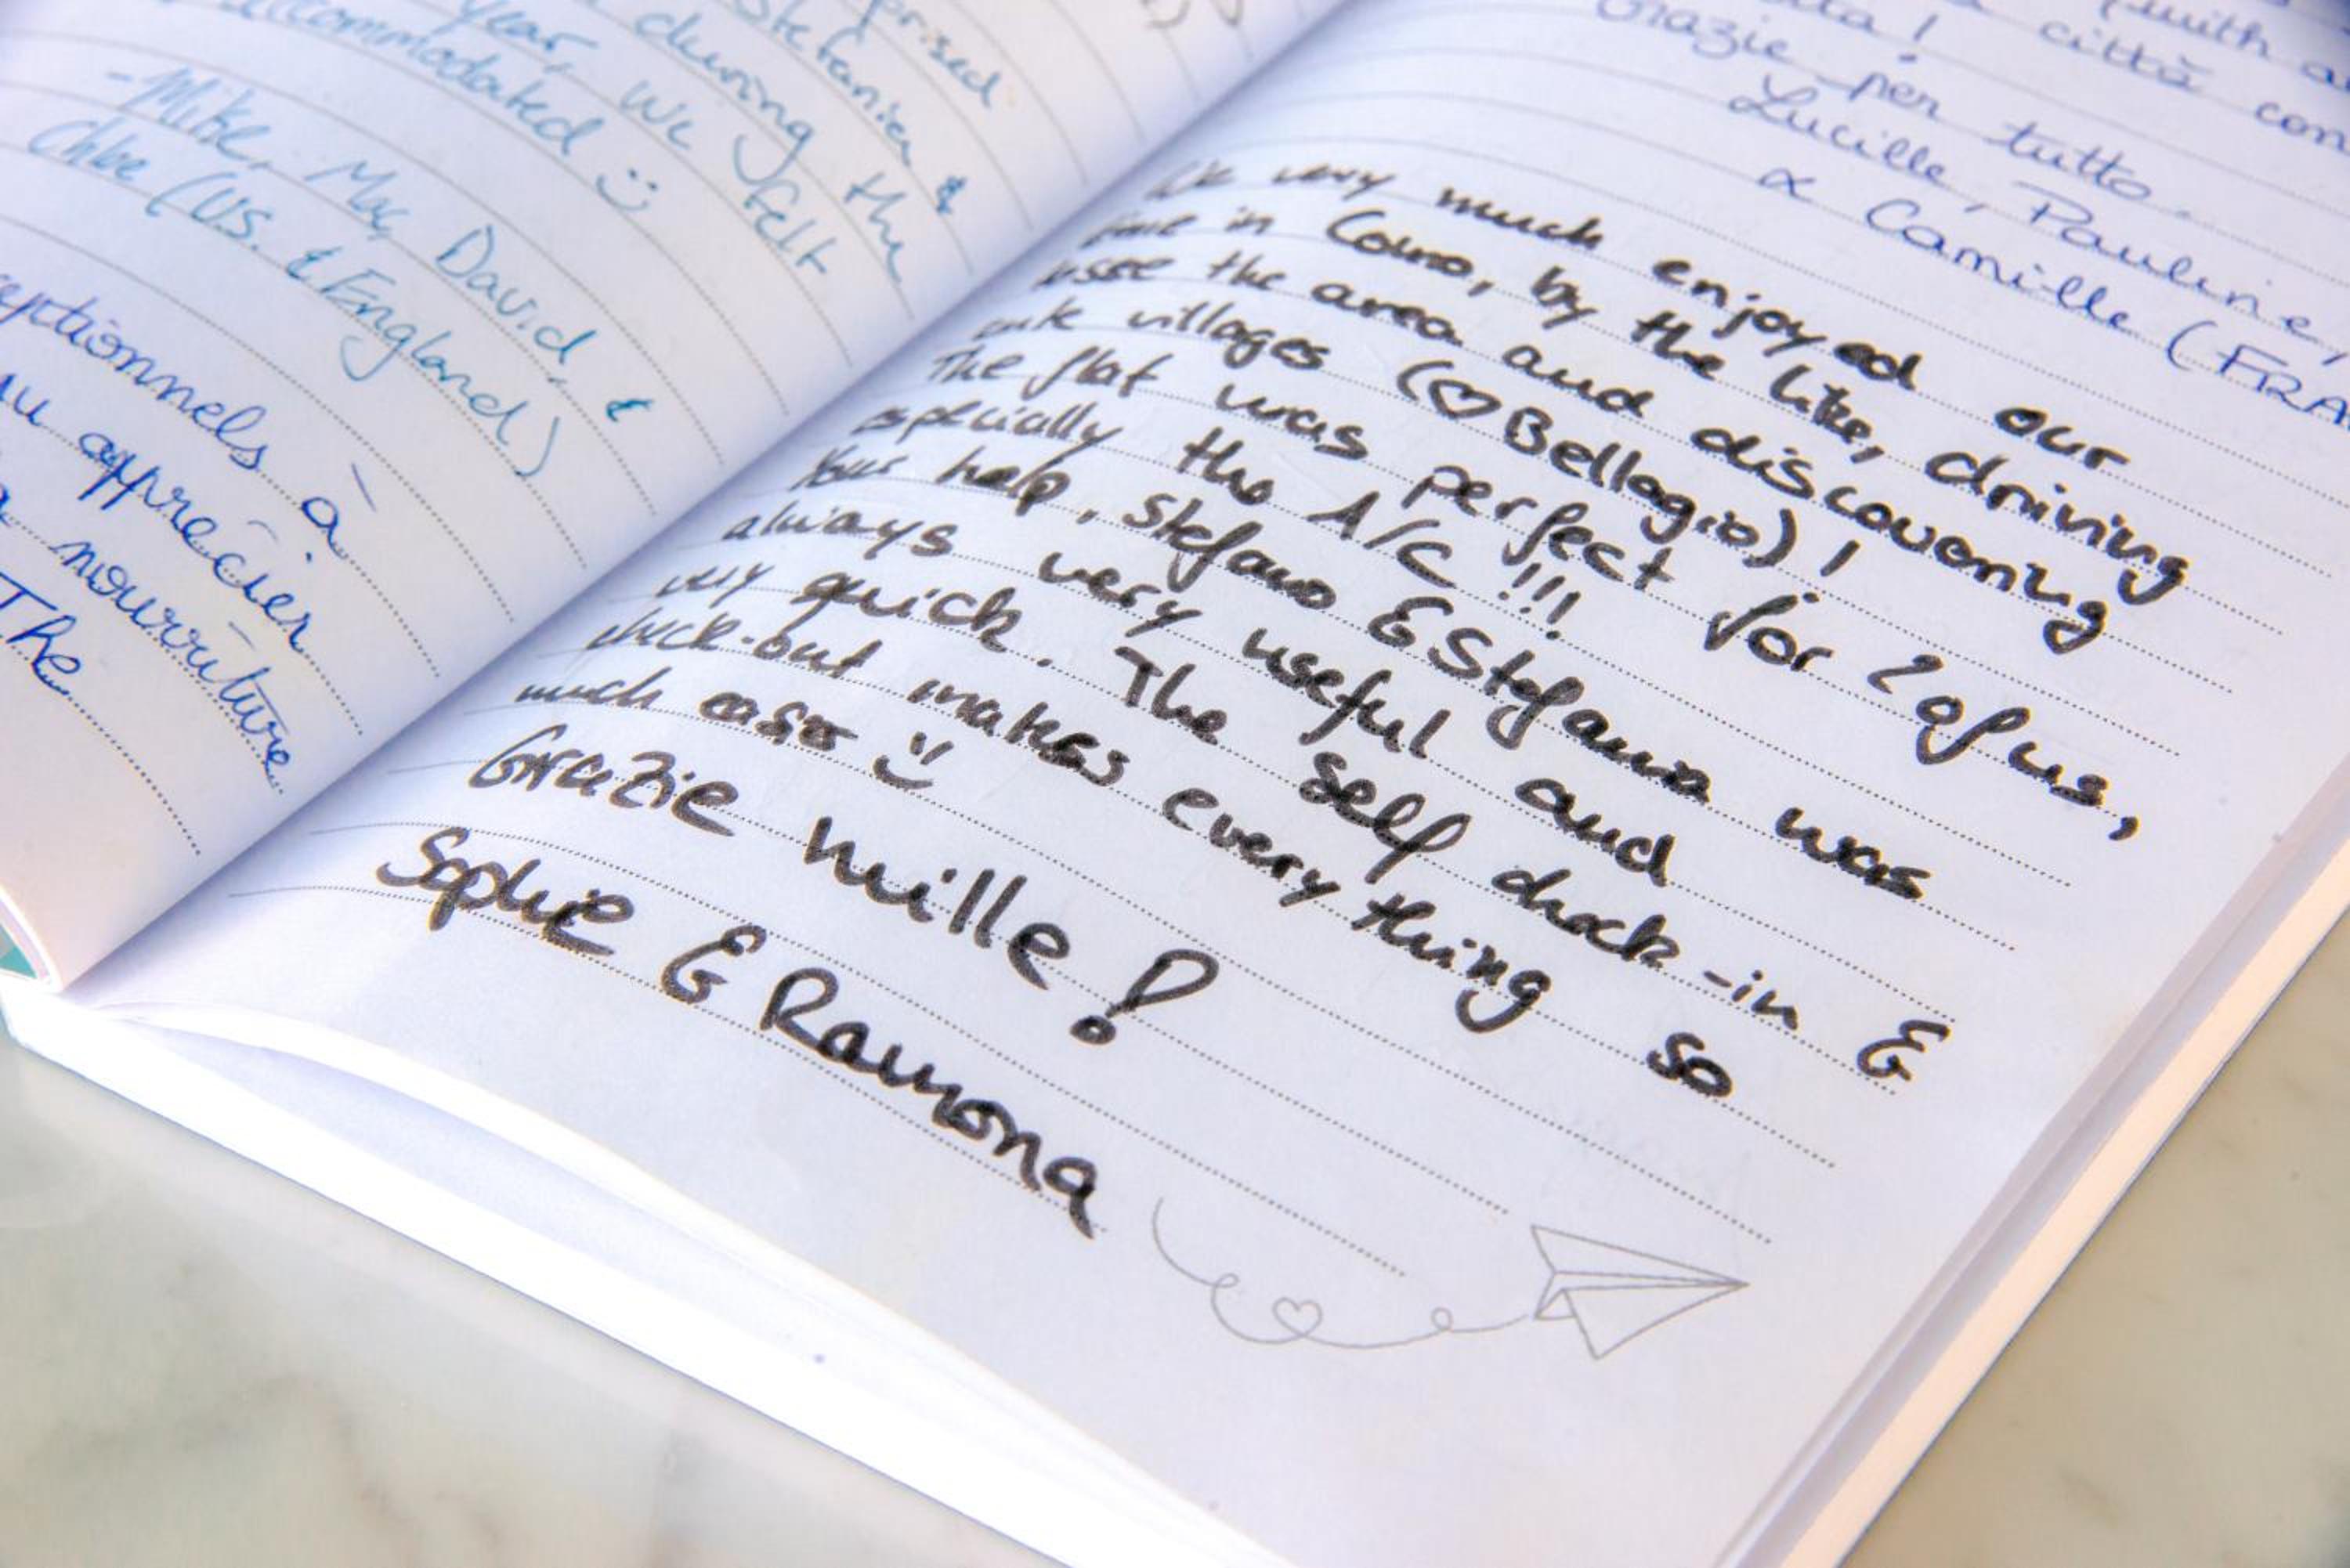 prised
Stefania &
during the
year, We felt
accommodated :)
- Mike, Mac, David, &
Chloe (U.S. & England)
à
apprécier
nourriture
The
città con
Grazie per tutto.
Lucille, Pauline,
& Camille (FRA
very much enjoyed our
in Como, by the like, driving
the area and discovering
villages (♡ Bellagio) !
The flat was perfect for 2 of us,
especially the A/C !!!
Your help, Stefano & Stefania was
always very useful and
very quick. The self check-in &
check-out makes everything so
much easier :)
Grazie mille!
Sophie & Ramona